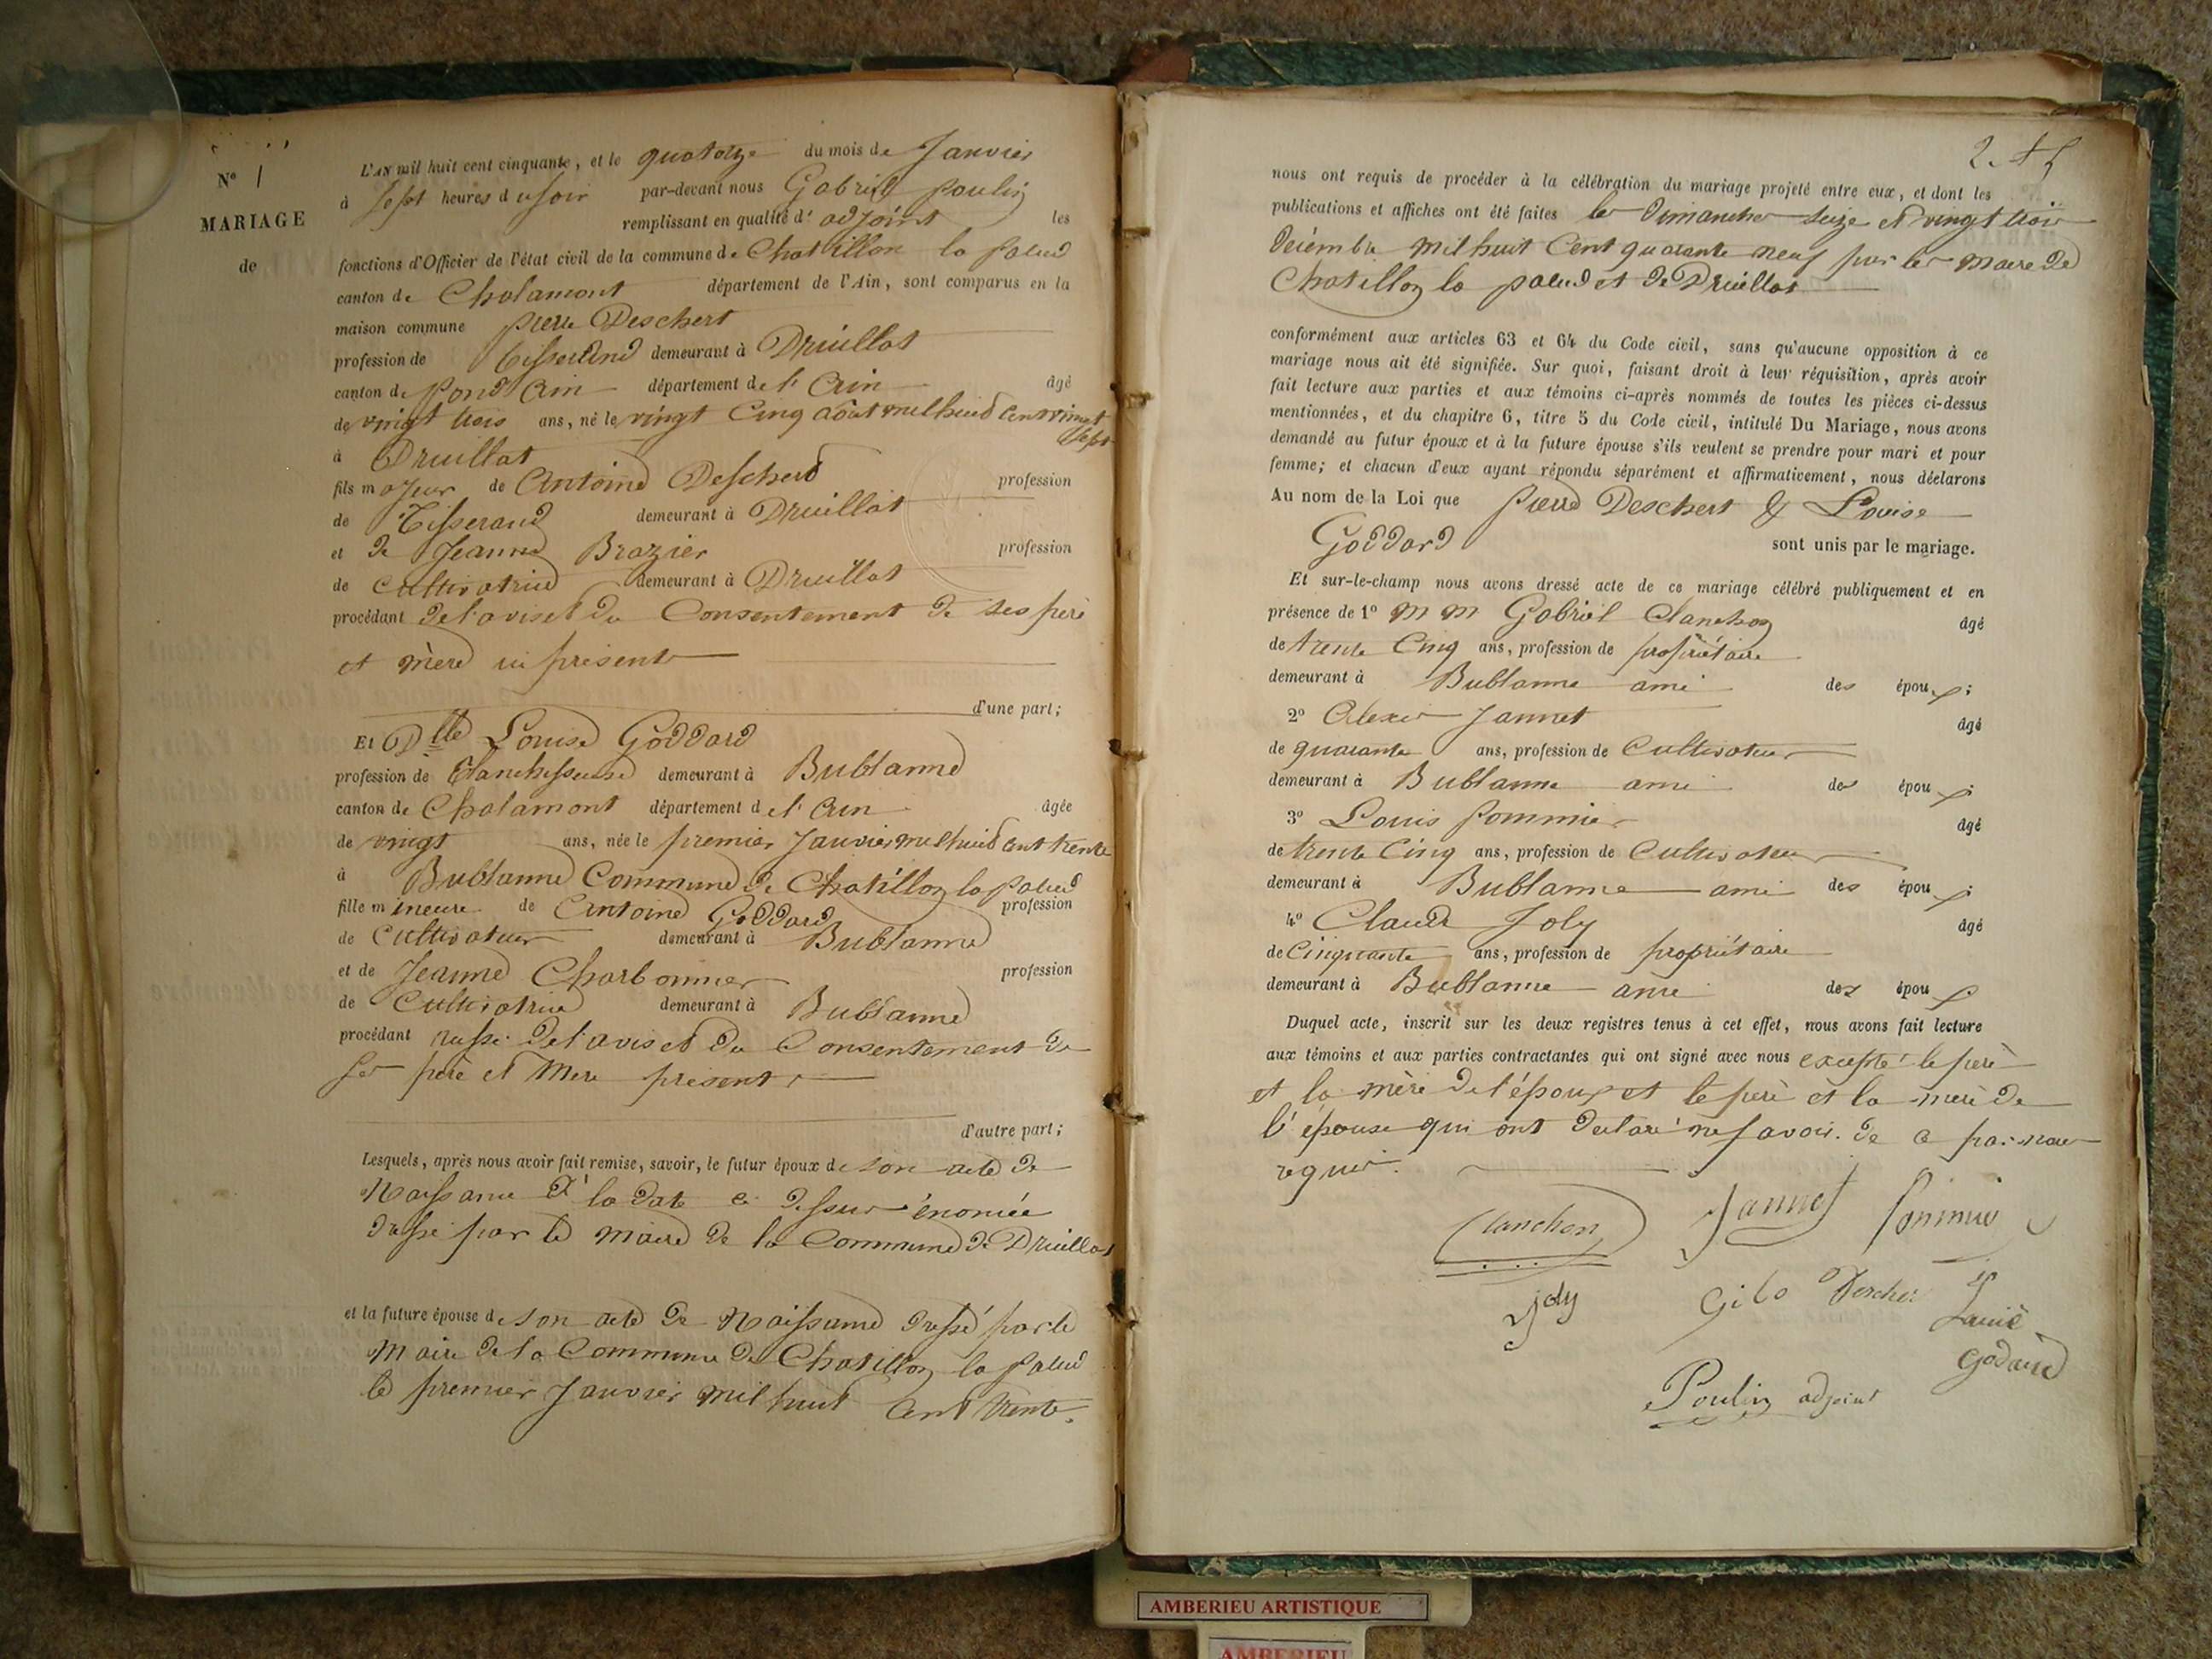 N° 1
MARIAGE
de
L'AN mil huit cent cinquante, et le quatorze du mois de Janvier
à sept heures du soir par-devant nous Gabriel Poulin
remplissant en qualité d' adjoint les
fonctions d'Officier de l'état civil de la commune de Chatillon la palud
canton de Chalamont département de l'Ain, sont comparus en la
maison commune pierre Deschert
profession de tisserand demeurant à Druillat
canton de Pond'Ain département de l' Ain âgé
de vingt trois ans, né le vingt Cinq août mil huit Cent vingt
sept
à Druillat
fils majeur de Antoine Deschert profession
de Tisserand demeurant à Druillat
et de Jeanne Brazier profession
de Cultivatrice demeurant à Druillat
procédant de l'avis et du Consentement de ses père
et mère ici présent
d'une part;
Et Dlle Louise Goddard
profession de Blanchisseuse demeurant à Bublanne
canton de Chalamont département de l' Ain âgée
de vingt ans, née le premier Janvier mil huit Cent trente
à Bublanne Commune de Chatillon la palud
fille mineure de Antoine Goddard profession
de Cultivateur demeurant à Bublanne
et de Jeanne Charbonnier profession
de Cultivatrice demeurant à Bublanne
procédant aussi de l'avis et du Consentement de
ses père et Mere présent
d'autre part;
Lesquels, après nous avoir fait remise, savoir, le futur époux de son acte de
Naissance à la date ci dessus énoncée
dressé par le maire de la Commune de Druillat
et la future épouse de son acte de Naissance dressé par le
Maire de la Commune de Chatillon la Palud
le premier Janvier mil huit Cent trente.
nous ont requis de procéder à la célébration du mariage projeté entre eux, et dont les
publications et affiches ont été faites les Dimanches seize et vingt trois
Décembre mil huit Cent quarante neuf par les maire de
Chatillon la palud et de Druillat
conformément aux articles 63 et 64 du Code civil, sans qu'aucune opposition à ce
mariage nous ait été signifiée. Sur quoi, faisant droit à leur réquisition, après avoir
fait lecture aux parties et aux témoins ci-après nommés de toutes les pièces ci-dessus
mentionnées, et du chapitre 6, titre 5 du Code civil, intitulé Du Mariage, nous avons
demandé au futur époux et à la future épouse s'ils veulent se prendre pour mari et pour
femme; et chacun d'eux ayant répondu séparément et affirmativement, nous déclarons
Au nom de la Loi que pierre Deschert & Louise
Goddard sont unis par le mariage.
Et sur-le-champ nous avons dressé acte de ce mariage célébré publiquement et en
présence de 1° M M Gabriel Clanchon âgé
de trente Cinq ans, profession de propriétaire
demeurant à Bublanne ami des époux;
2° Alexis Jannet âgé
de quarante ans, profession de Cultivateur
demeurant à Bublanne ami des époux;
3° Louis Pommier âgé
de trente Cinq ans, profession de Cultivateur
demeurant à Bublanne ami des époux;
4° Claude Joly âgé
de Cinquante ans, profession de propriétaire
demeurant à Bublanne ami des époux
Duquel acte, inscrit sur les deux registres tenus à cet effet, nous avons fait lecture
aux témoins et aux parties contractantes qui ont signé avec nous excepté le père
et la mère de l'époux et le père et la mère de
l'épouse qui ont déclaré ne savoir. de ce par nous
requis.
Clanchon Jannet Pommier
joly Deschert
Godard
Poulin adjoint
AMBERIEU ARTISTIQUE
AMBERIEU